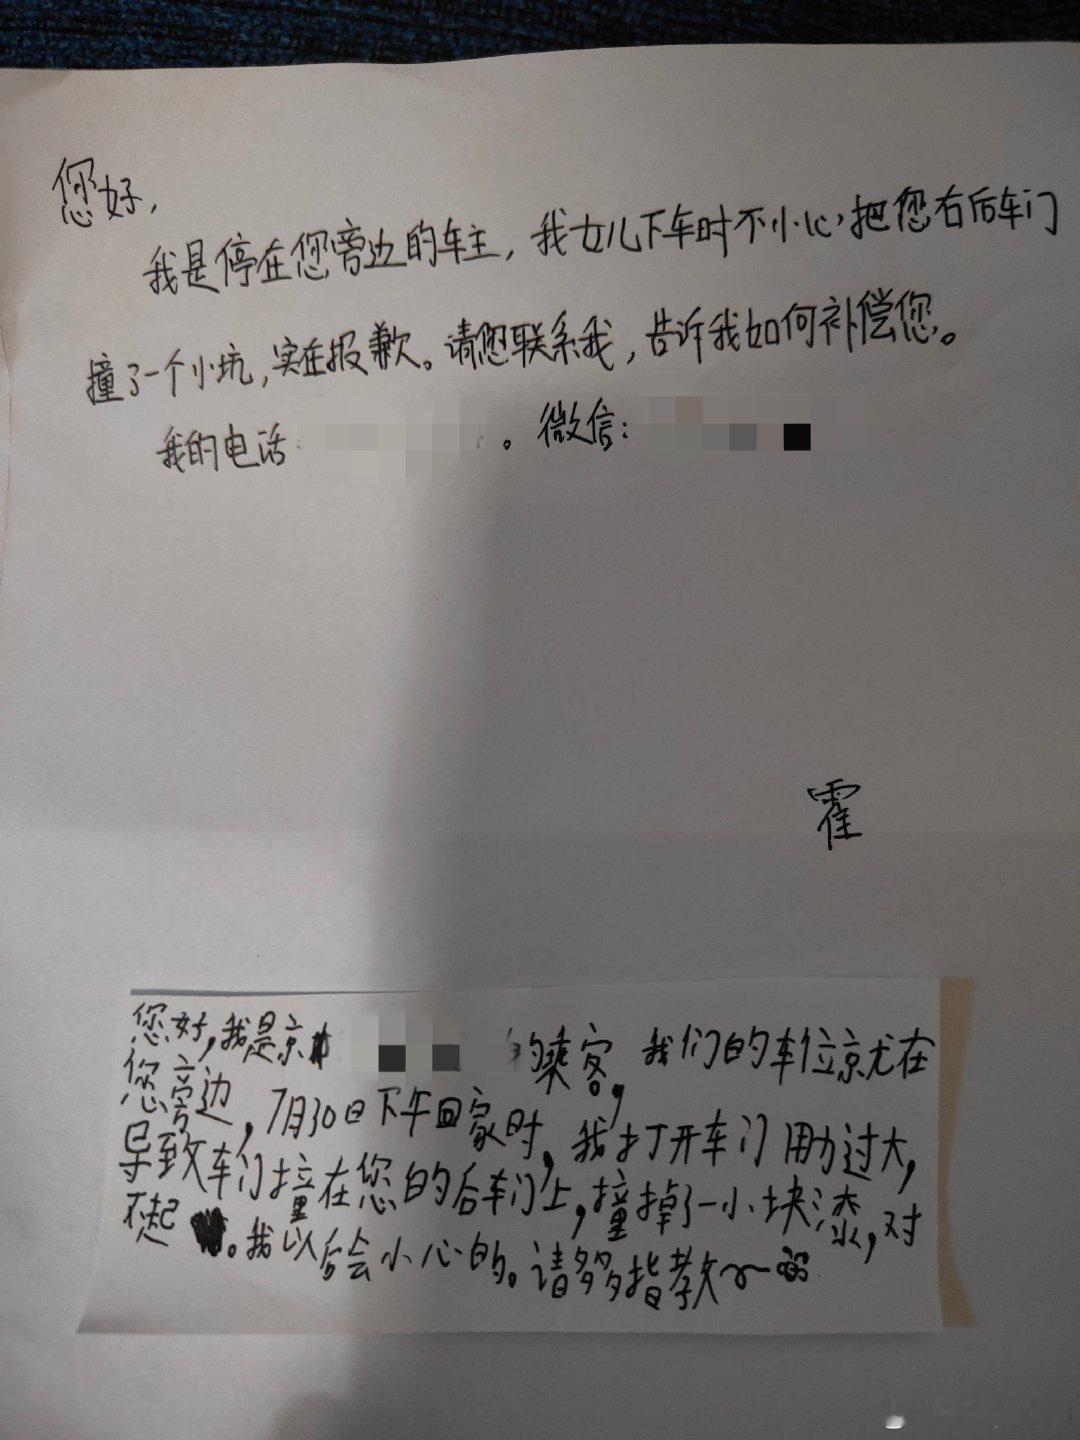 您好,
我是停在您旁边的车主,我女儿下车时不小心,把您右后车门
撞了一个小坑,实在报歉。请您联系我,告诉我如何补偿您。
我的电话:。微信:
霍
您好,我是京的乘客,我们的车位京尤在
您旁边,7月30日下午回家时,我打开车门用力过大,
导致车门撞在您的后车门上,撞掉了一小块漆,对
不起。我以后会小心的。请多多指教~